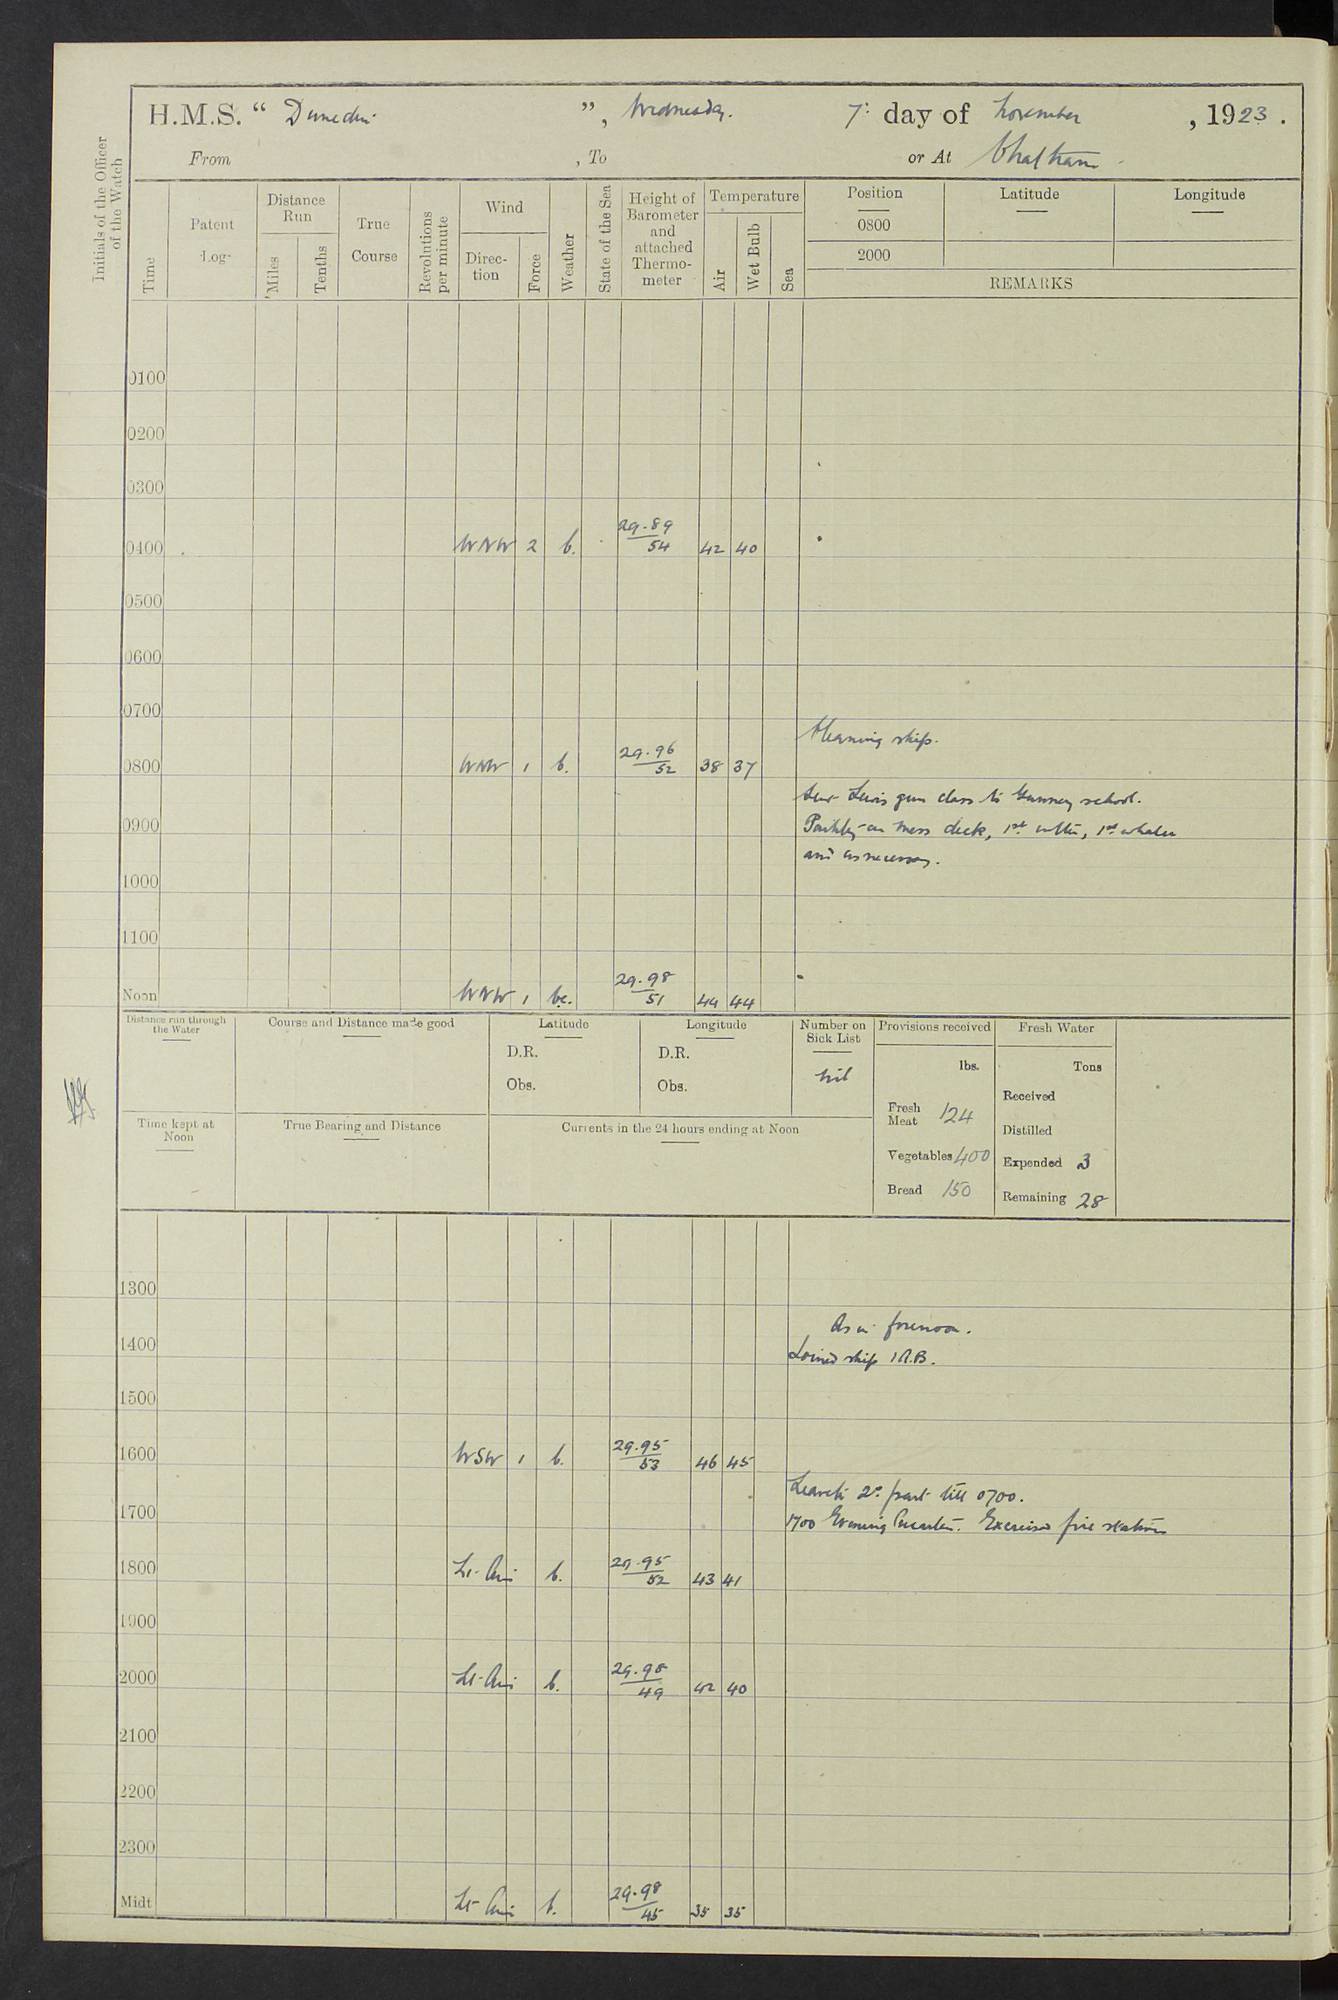 H.M.S. “ Dunedin ”, Wednesday. 7th day of November, 1923.
From , To or At Chatham.
Initials of the Officer of the Watch
Time
Patent Log
Distance Run
Miles
Tenths
True Course
Revolutions per minute
Wind
Direc-tion
Force
Weather
State of the Sea
Height of Barometer and attached Thermo-meter
Temperature
Air
Wet Bulb
Sea
Position Latitude Longitude
0800
2000
REMARKS
0100
0200
0300
0400 WNW 2 b. 29.89 54 42 40
0500
0600
0700
Cleaning ship.
0800 WNW 1 b. 29.96 52 38 37
Sent Lewis gun class to Gunnery school.
0900 Painting on mess deck, 1st cutter, 1st whaler
and as necessary.
1000
1100
Noon WNW 1 bc. 29.98 51 44 44
Distance run through the Water
Course and Distance made good
Latitude
D.R.
Obs.
Longitude
D.R.
Obs.
Number on Sick List
Nil
Provisions received
lbs.
Fresh Meat 124
Vegetables 400
Bread 150
Fresh Water
Tons
Received
Distilled
Expended 3
Remaining 28
Time kept at Noon
True Bearing and Distance
Currents in the 24 hours ending at Noon
1300
As in forenoon.
1400 Joined ship 1 A.B.
1500
1600 WSW 1 b. 29.95 53 46 45
Leave to 2nd part till 0700.
1700 1700 Evening Quarters. Exercised fire stations
1800 Lt. Airs b. 29.95 52 43 41
1900
2000 Lt. Airs b. 29.98 49 42 40
2100
2200
2300
Midt Lt Airs b. 29.98 45 35 35